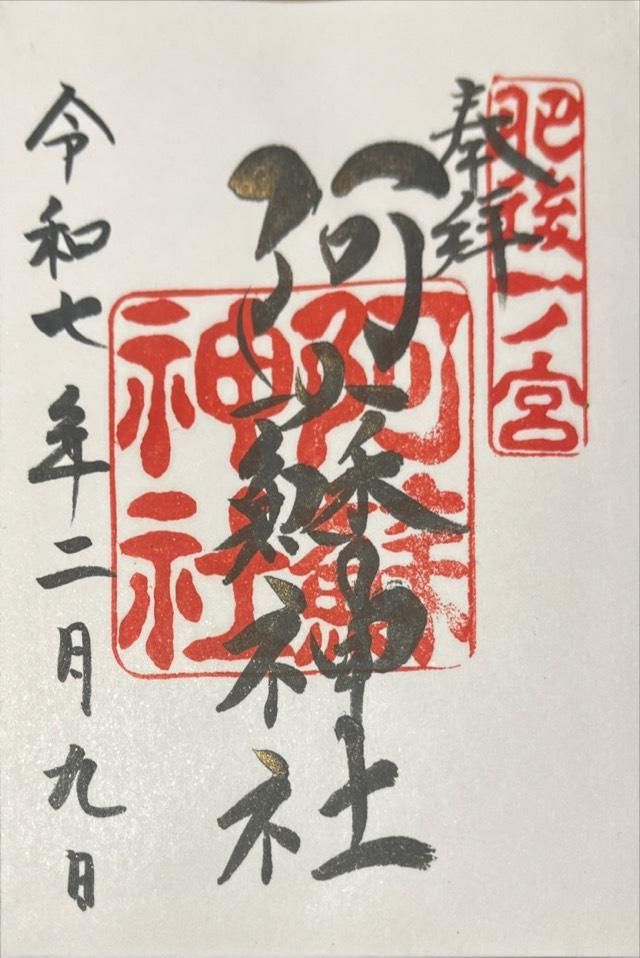 肥後一ノ宮
奉拝
阿蘇神社
阿蘇
神社
令和七年二月九日